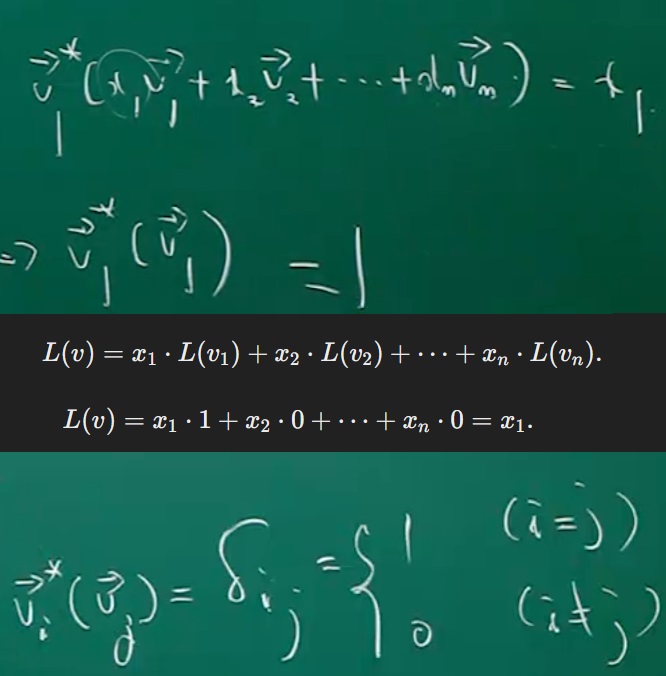 v⃗₁*(x₁v⃗₁ + x₂v⃗₂ + ⋯ + xₙv⃗ₙ) = x₁
⇒ v⃗₁*(v⃗₁) = 1
L(v) = x₁ · L(v₁) + x₂ · L(v₂) + ⋯ + xₙ · L(vₙ).
L(v) = x₁ · 1 + x₂ · 0 + ⋯ + xₙ · 0 = x₁.
v⃗ᵢ*(v⃗ⱼ) = δᵢⱼ = { 1 (i=j)
0 (i≠j)